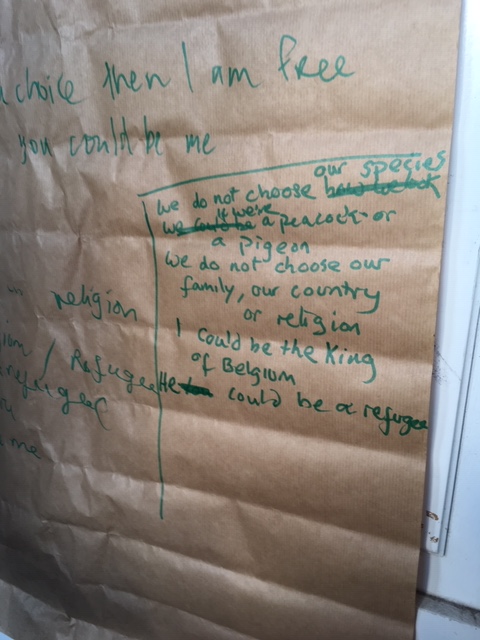 choice then I am free
you could be me
our species
we do not choose how we look
if we're
we could be a peacock or
a pigeon
we do not choose our
family, our country
or religion
I could be the King
of Belgium
He could be a refugee
religion
/ Refugee
refugee
me